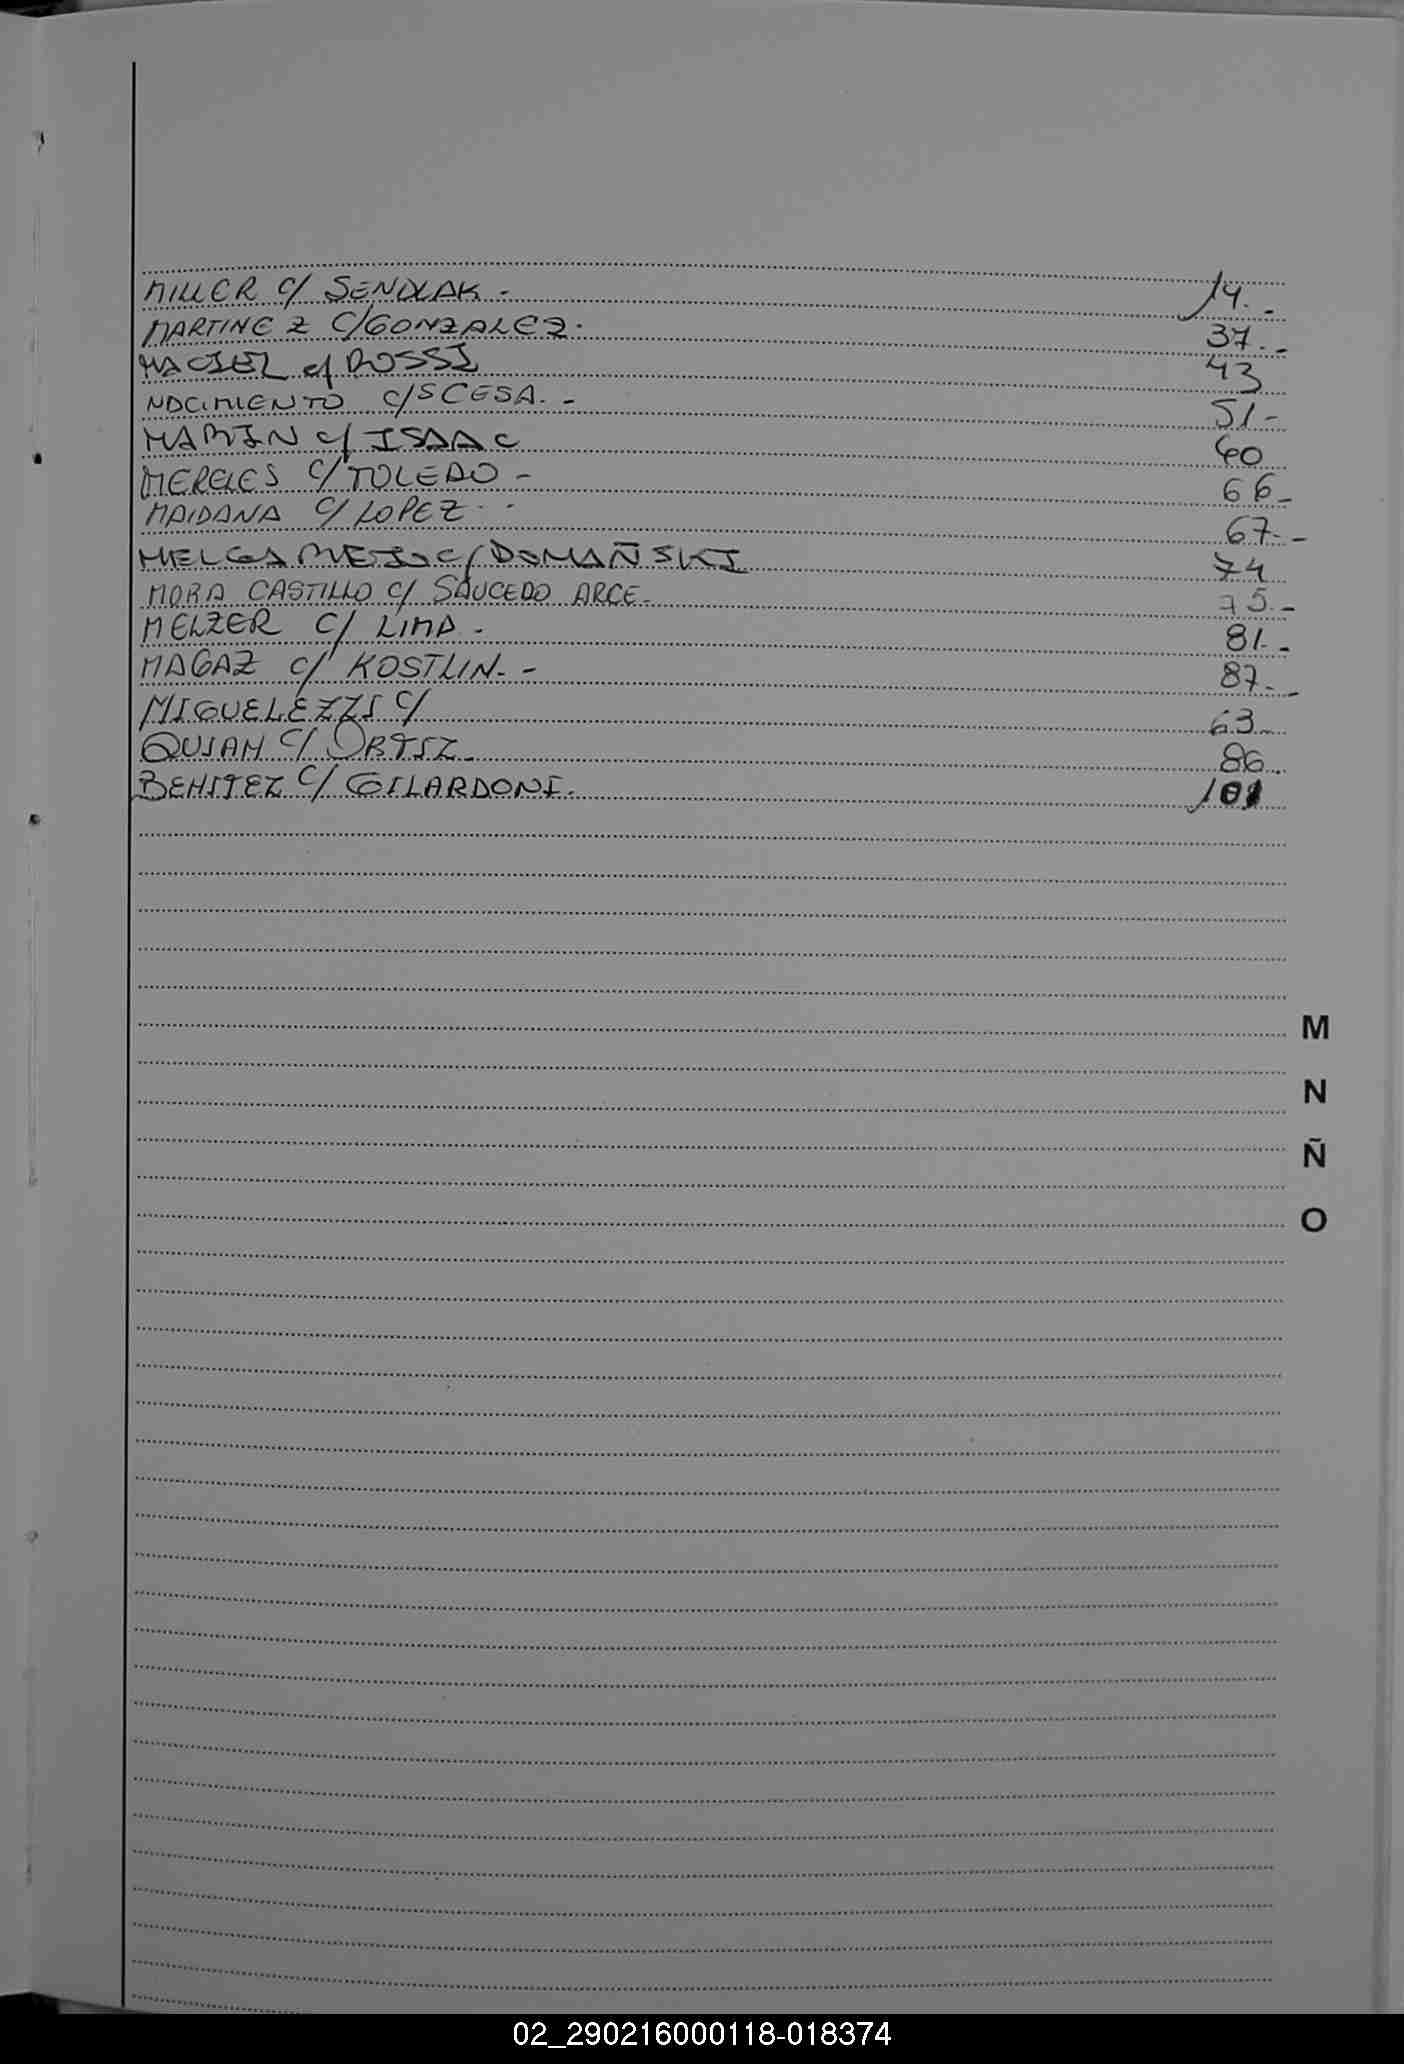 MILLER C/ SENDLAK.- 14.-
MARTINEZ C/GONZALEZ. 37.-
MACIEL c/ ROSSI 43
NACIMIENTO C/SCESA.- 51-
MARIN c/ ISAAC 60
MERELES C/TOLEDO - 66-
MAIDANA C/ LOPEZ - 67.-
MELGAREJO c/ DOMAÑSKI 74
MORA CASTILLO C/ SAUCEDO ARCE. 75.-
MELZER C/ LIMA - 81.-
MAGAZ C/ KOSTLIN.- 87.-
MIGUELEZZI C/ 63
QUIAM C/ ORTIZ. 86
BENITEZ C/ GILARDONI. 101
M
N
Ñ
O
02_290216000118-018374